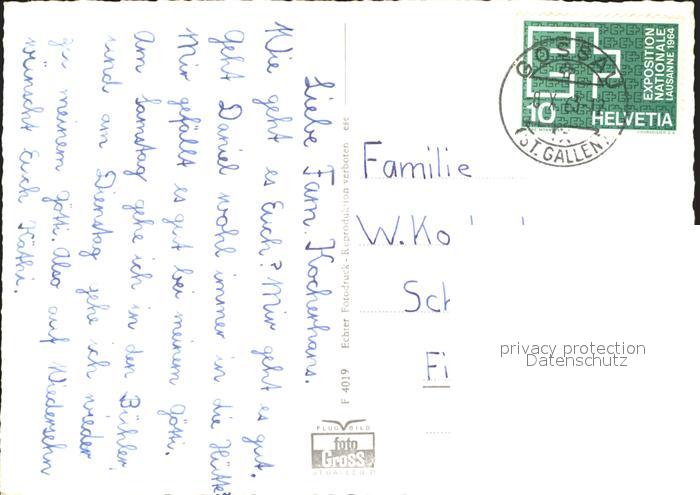 Liebe Fam. Kocherhans.
Wie geht es Euch? Mir geht es gut.
Geht Daniel wohl immer in die Hütte?
Mir gefällt es gut bei meinem Götti.
Am Samstag gehe ich in den Bühler
und am Dienstag gehe ich wieder
zu meinem Götti. Also auf Wiedersehn
wünscht Euch Käthi.
F 4019 Echter Fotodruck - Reproduktion verboten
FLUGBILD
foto
Gross
ST. GALLEN
EXPOSITION
NATIONALE
LAUSANNE 1964
10 HELVETIA
GOSSAU
(ST. GALLEN)
Familie
W. Ko
Sch
Fi
privacy protection
Datenschutz